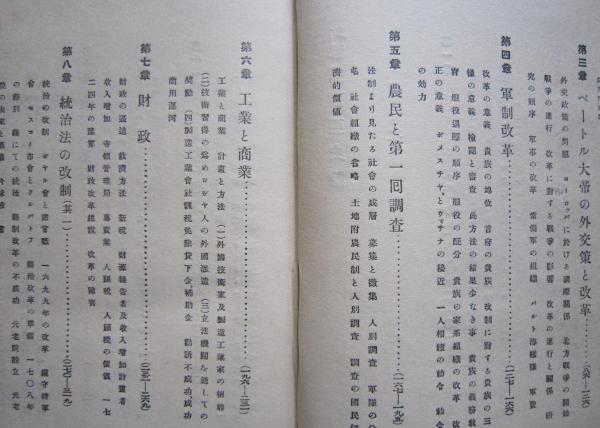 第三章 ペートル大帝の外交策と改革
外交政策の問題 ヨーロッパに於ける國際關係 北方戰爭の開始
戰爭の進行 改革に對する戰爭の影響 改革の進行と關係 研
究の順序 軍事の改革 常備軍の組織 バルト海艦隊 軍費
第四章 軍制改革
改革の意義 貴族の地位 首府の貴族 改制に對する貴族の三
樣の意義 檢閲と審査 此方法の結果少なき事 貴族の義務教
育 服役退隱の順序 服役の配分 貴族の家系組織の改革 改
正の意義 ポメスチヤとウッチナの接近 一人相續の勅令 勅令
の効力
第五章 農民と第一囘調査
法制より見たる社會の成層 募集と徴集 人別調査 軍隊の
屯 社會組織の省略 土地附農民制と人別調査 調査の國民經
濟的價値
第六章 工業と商業
工業と商業 計畫と方法 (一)外國技術家及製造工業家の招聘
(二)技術習得の爲めロシヤ人の外國派遣 (三)立法機關を通しての
奬勵 (四)製造工業會社課税免除貸下金補助金 勸誘不成功成功
商用運河
第七章 財政
財政の逼迫 救濟方法 新税 財源報告者及收入増加計畫者
收入増加 寺領管理局 專賣業 人頭税 人頭税の價値 一七
二四年の豫算 財政改革總説 改革の障害
第八章 統治法の改制 (其一)
統治の改制 ボヤル會と諸官職 一六九九年の改革 鎭守將軍
會 モスコー市會とクルバトフ 縣治改革の準備 一七〇八年
の縣別 縣にての統治 縣制改革の不成功 元老院設立 元老